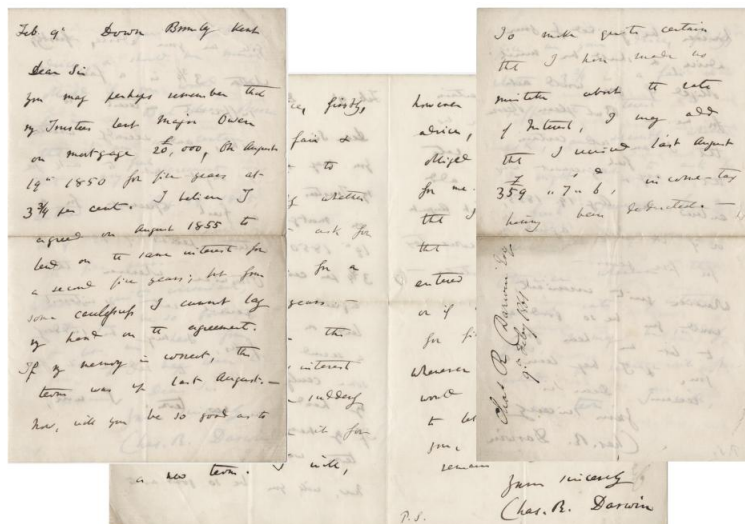 Feb 9th Down Bromley Kent
Dear Sir
You may perhaps remember that
my Trustees lent Major Owen
on mortgage £20,000, on August
19th 1850 for five years at
3 3/4 per cent. I believe I
agreed on August 1855 to
lend on the same interest for
a second five years; but from
some carelessness I cannot lay
my hand on the agreement.
If my memory is correct, the
term was up last August.—
Now, will you be so good as to
firstly,
fair &
to
whether
ask for
for a
years—
the
interest
suddenly
for
a new term. I will,
however
advice,
obliged
for me.
the I
that
entered
or if
for fi
whenever
would
to
you,
remain
Yours sincerely
Chas. R. Darwin
P.S.
To make quite certain
that I have made no
mistake about the rate
of Interest, I may add
that I received last August
£359 "7" 6, income-tax
having been deducted.—
Chas R Darwin Esq
9th Feby 1861